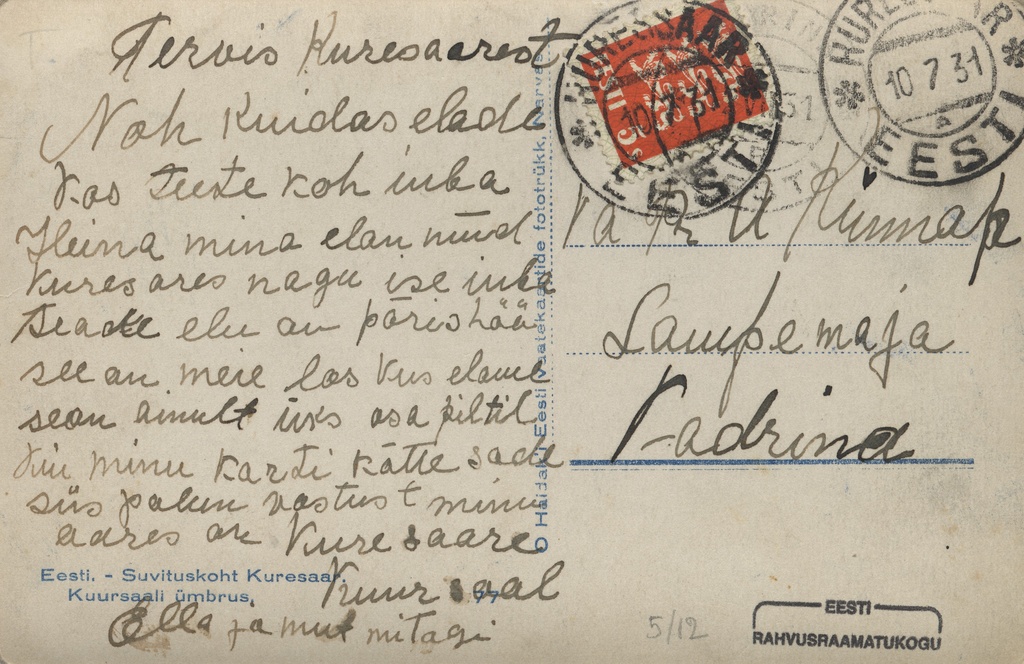 Tervis Kuresaarest
Noh kuidas elade
kas teete koh juba
Heina mina elan nüüd
Kuresares nagu ise juba
teade elu on päris hää
see on meie los kus elame
seon ainult üks osa piltil
kui minu kardi kätte sade
siis palun vastust minu
aadres on Kuresaare
Kuursaal
Ella ja muu mitagi
Eesti. - Suvituskoht Kuresaar.
Kuursaali ümbrus.
77
O Haidak, Eesti vaatekaartide fototrükk, Narvas
KURESSAAR
10.7.31
EESTI
KURESSAAR
10 7 31
EESTI
Kinnap
Lampemaja
Kadrina
5/12
EESTI
RAHVUSRAAMATUKOGU